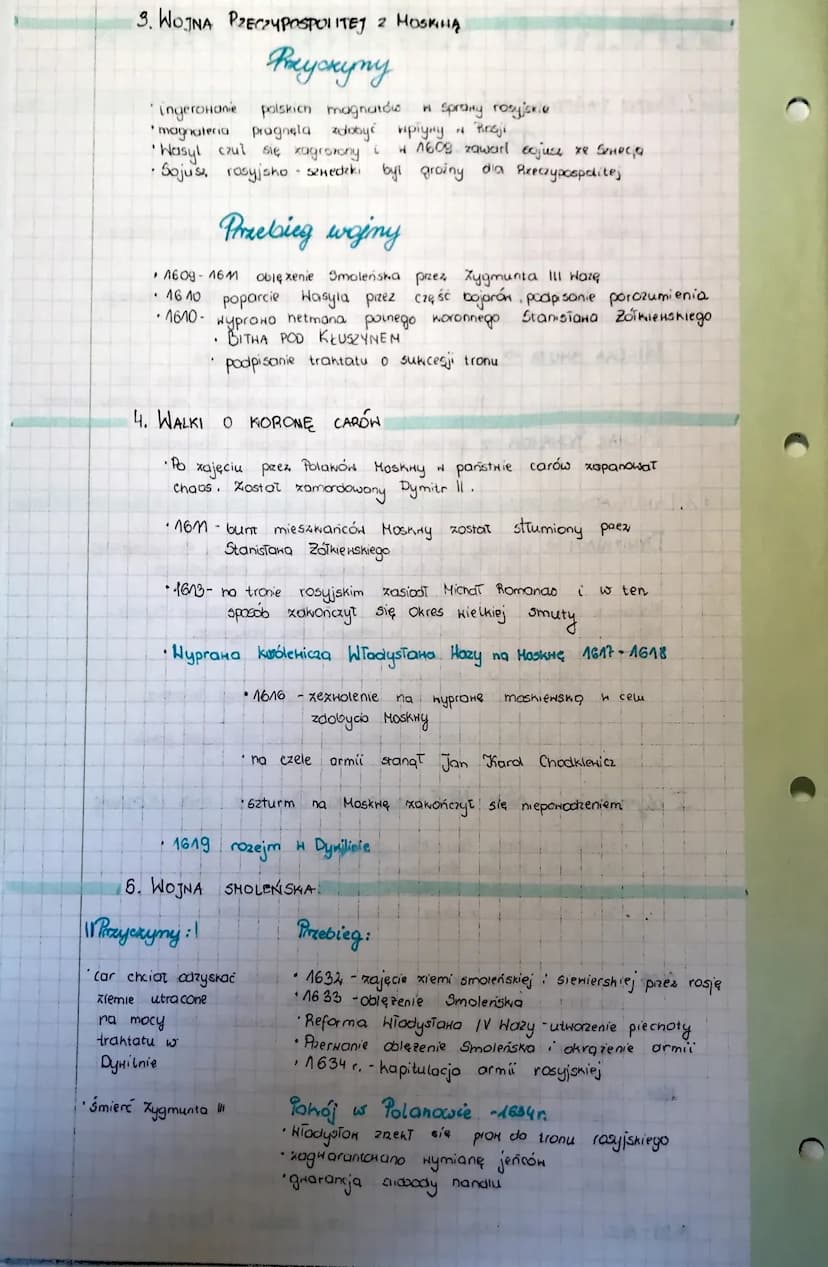 3. WOJNA RZECZYPOSPOLITEJ Z MOSKWĄ
Przyczyny
• ingerowanie polskich magnatów w sprawy rosyjskie
• magnateria pragnęła zdobyć wpływy w Rosji
• Wasyl czuł się zagrożony i w 1609 zawarł sojusz ze Szwecją
• Sojusz rosyjsko - szwedzki był groźny dla Rzeczypospolitej
Przebieg wojny
• 1609 - 1611 oblężenie Smoleńska przez Zygmunta III Wazę
• 1610 poparcie Wasyla przez część bojarów, podpisanie porozumienia
• 1610 - wyprawa hetmana polnego koronnego Stanisława Żółkiewskiego
• BITWA POD KŁUSZYNEM
• podpisanie traktatu o sukcesji tronu
4. WALKI O KORONĘ CARÓW
• Po zajęciu przez Polaków Moskwy w państwie carów zapanował
chaos. Został zamordowany Dymitr II.
• 1611 - bunt mieszkańców Moskwy został stłumiony przez
Stanisława Żółkiewskiego
• 1613 - na tronie rosyjskim zasiadł Michał Romanao i w ten
sposób zakończył się okres wielkiej smuty
• Wyprawa królewicza Władysława Wazy na Moskwę 1617 - 1618
• 1616 - zezwolenie na wyprawę moskiewską w celu
zdobycia Moskwy
• na czele armii stanął Jan Karol Chodkiewicz
• szturm na Moskwę zakończył się niepowodzeniem
• 1619 rozejm w Dywilinie
6. WOJNA SMOLEŃSKA.
Przyczyny:
Przebieg:
• car chciał odzyskać
ziemie utracone
na mocy
traktatu w
Dywilnie
• śmierć Zygmunta III
• 1632 - zajęcie ziemi smoleńskiej i siewierskiej przez rosję
• 1633 - oblężenie Smoleńska
• Reforma Władysława IV Wazy - utworzenie piechoty
• Przerwanie oblężenie Smoleńska i okrążenie armii
• 1634 r. - kapitulacja armii rosyjskiej
Pokój w Polanowie - 1634r.
• Władysław zrzekł się praw do tronu rosyjskiego
• zagwarantowano wymianę jeńców
• gwarancja swobody handlu